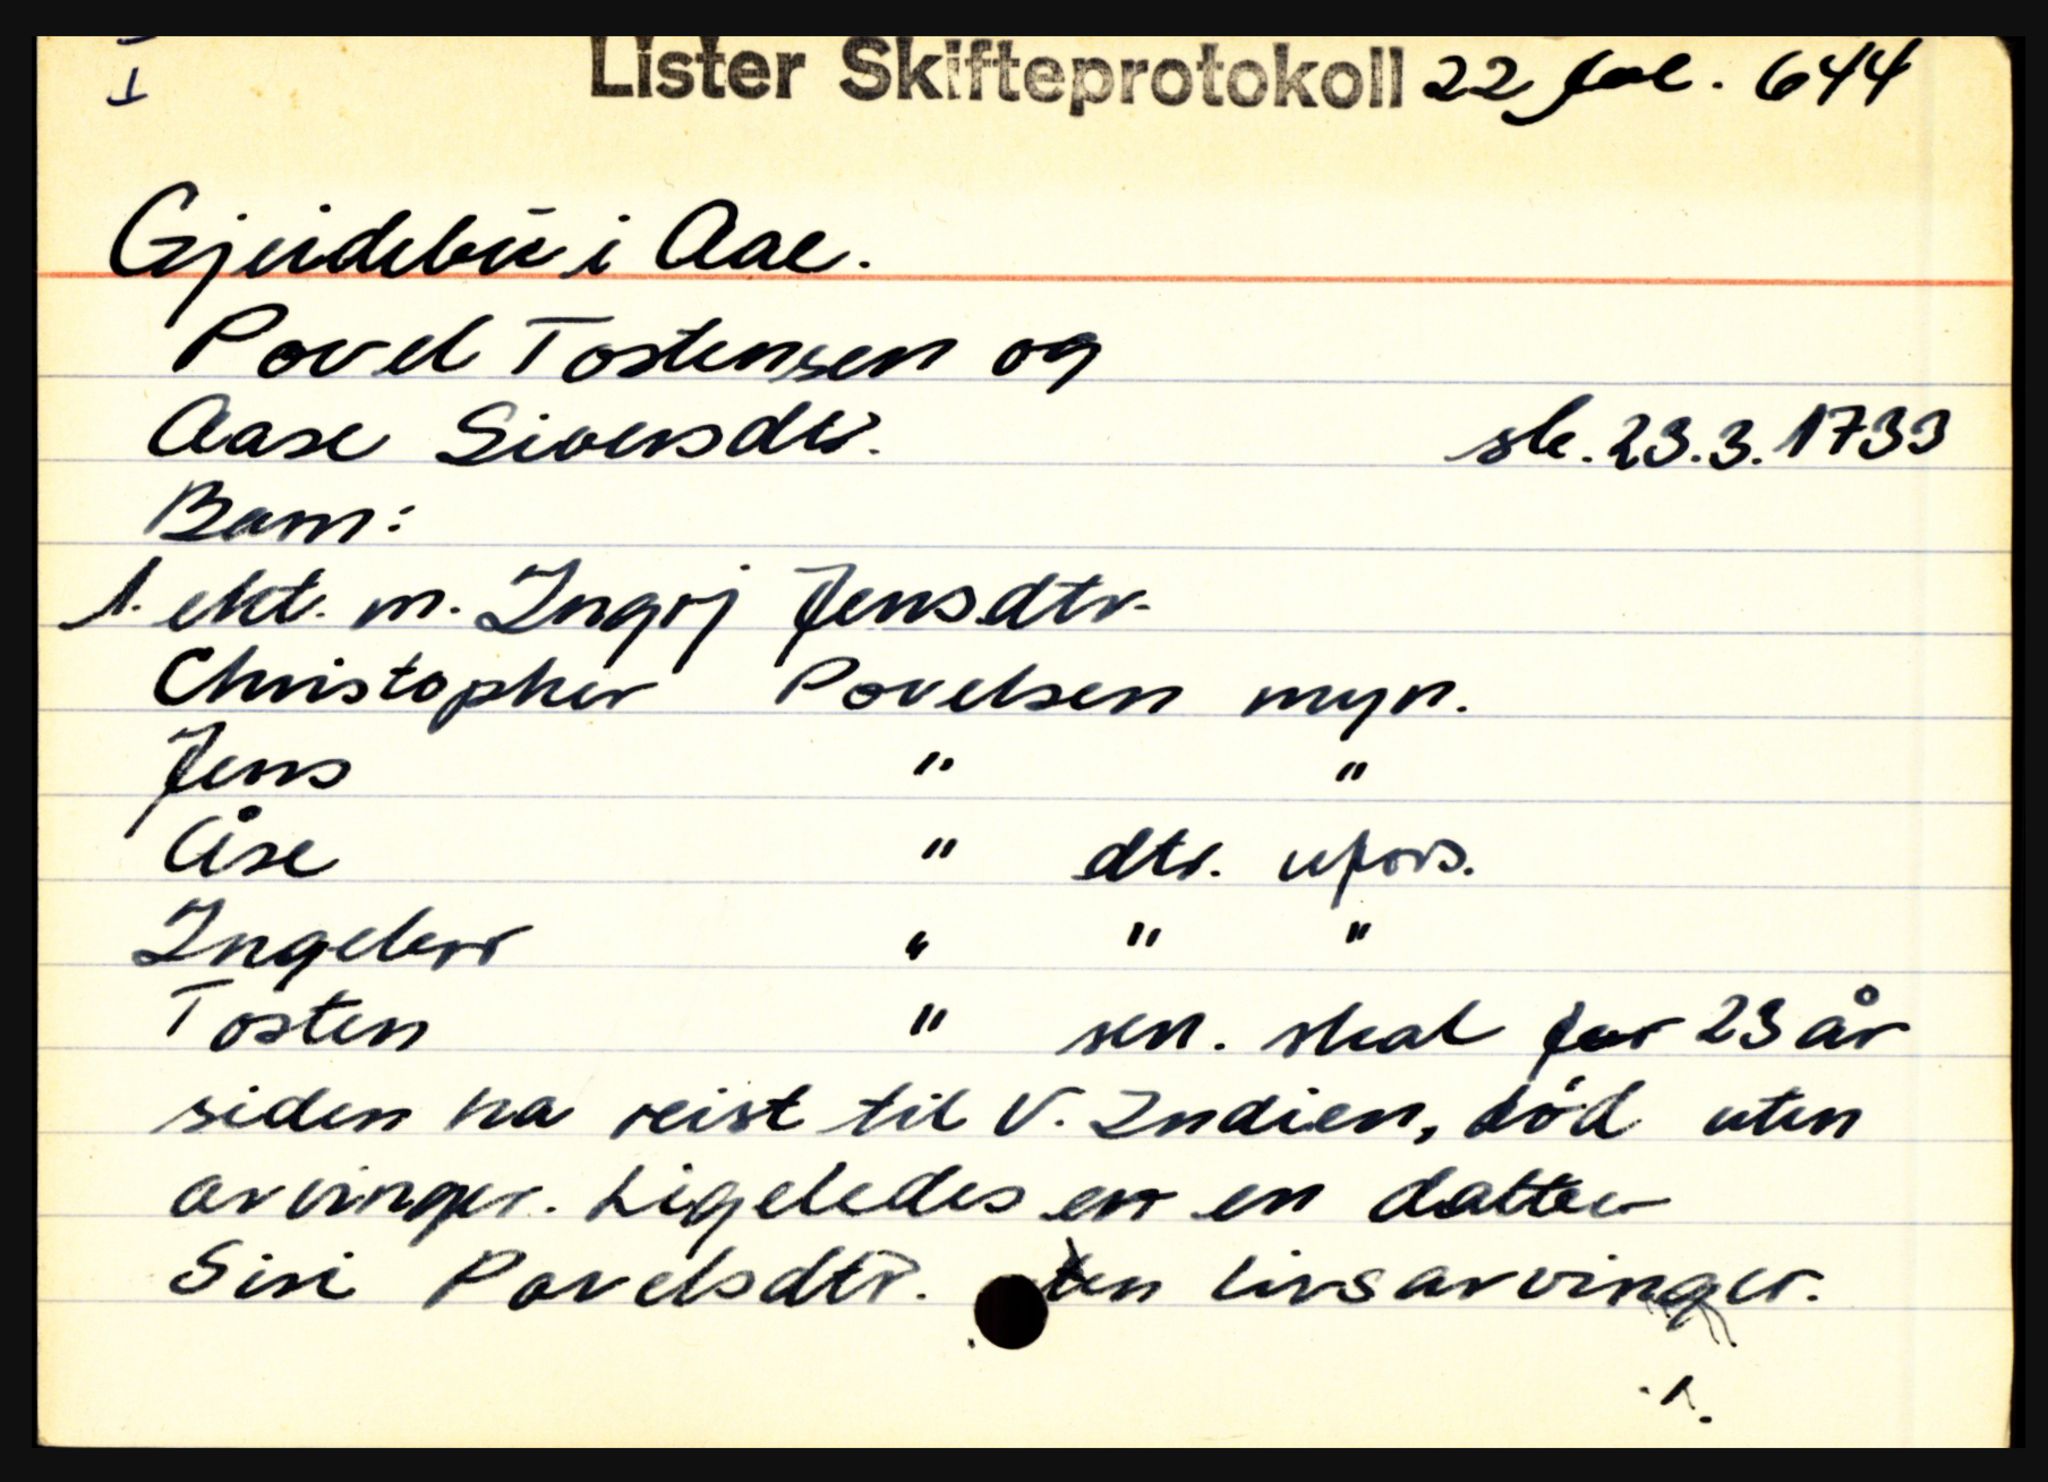 I
Lister Skifteprotokoll 22 fol. 644
Gjeidebü i Aal.
Povel Tostensen og
Aase Siversdtr. sk. 23.3.1733
Barn:
1. ekt. m. Ingrj Jensdtr.
Christopher Povelsen myn.
Jens " "
Åse " dtr. ufors.
Ingeborr " " "
Tosten " sen. skal for 23 år
siden ha reist til V. Indien, død uten
arvinger. Ligeledes en datter
Siri Povelsdtr. uten livsarvinger.